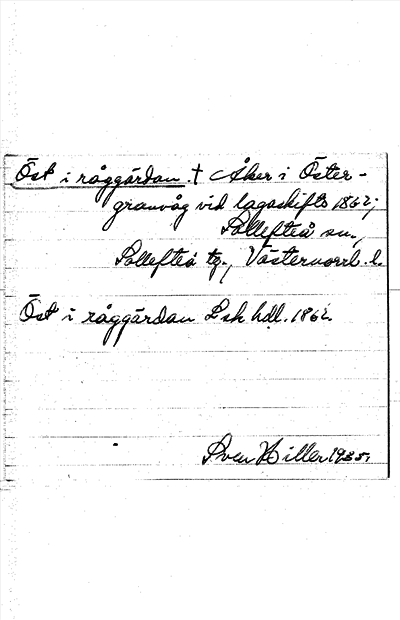 Öst i råggärdan. † Åker i Öster-
granvåg vid lagaskifte 1862;
Sollefteå sn.,
Sollefteå tg., Västernorrl. l.
Öst i råggärdan Lsk hdl. 1862.
Sven Hiller 1935.